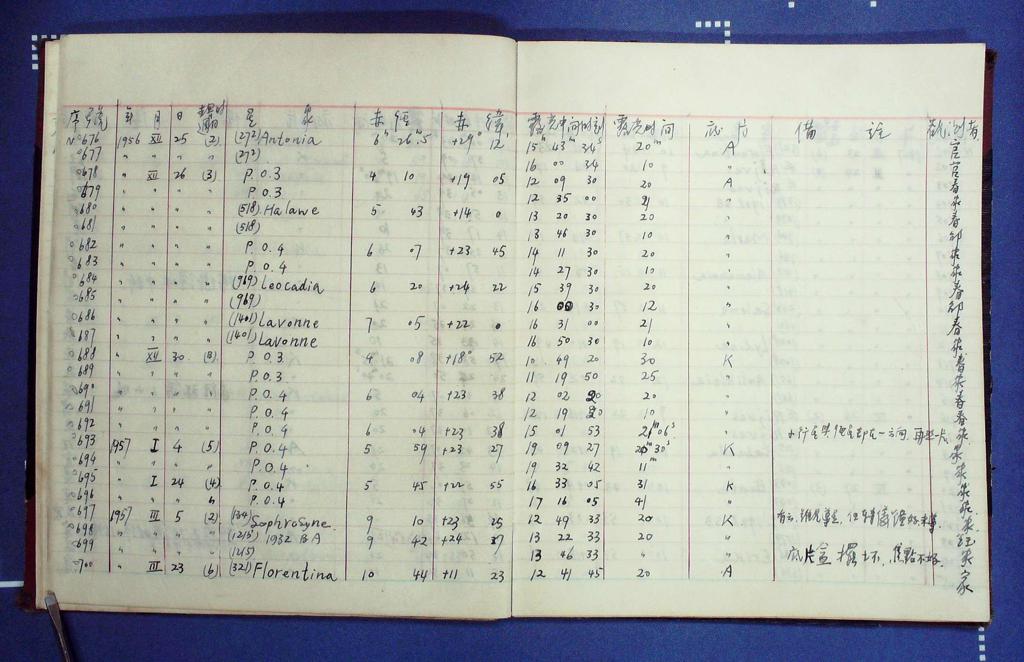 序号 年 月 日 星 象 赤 經 赤 緯 露光中间时刻 露光时间 底片 備 註 觀測者
№0676 1956 XII 25 (2) (272) Antonia 6h 26m.5 +29° 12' 15h 43m 34s 20m A
0677 " " " " (272) 16 00 34 10 "
0678 " XII 26 (3) P.O.3 4 10 +19 05 12 09 30 20 A
0679 " " " " P.O.3 12 35 00 21 "
0680 " " " " (518) Halawe 5 43 +14 0 13 20 30 20 "
0681 " " " " (518) 13 46 30 10 "
0682 " " " " P.O.4 6 07 +23 45 14 11 30 20 "
0683 " " " " P.O.4 14 27 30 10 "
0684 " " " " (969) Leocadia 6 20 +24 22 15 39 30 20 "
0685 " " " " (969) 16 00 30 12 "
0686 " " " " (1401) Lavonne 7 05 +22 0 16 31 00 21 "
0687 " " " " (1401) Lavonne 16 50 30 10 "
0688 " XII 30 (8) P.O.3 4 08 +18° 52 10 49 20 30 K
0689 " " " " P.O.3 11 19 50 25 "
0690 " " " " P.O.4 6 04 +23 38 12 02 20 20 "
0691 " " " " P.O.4 12 19 20 10 "
0692 " " " " P.O.4 6 04 +23 38 15 01 53 21m 06s "
0693 1957 I 4 (5) P.O.4 5 59 +23 27 19 09 27 20m 30s K
0694 " " " " P.O.4 19 32 42 11m "
0695 " I 24 (4) P.O.4 5 45 +22 55 16 33 05 31 K
0696 " " " " P.O.4 17 16 05 41 "
0697 1957 III 5 (2) (134) Sophrosyne 9 10 +23 25 12 49 33 20 K
0698 " " " " (1215) 1932 BA 9 42 +24 37 13 22 33 20 "
0699 " " " " (1215) 13 46 33 " " 底片盒擺坏, 焦點不好
0700 " III 23 (6) (321) Florentina 10 44 +11 23 12 41 45 20 A